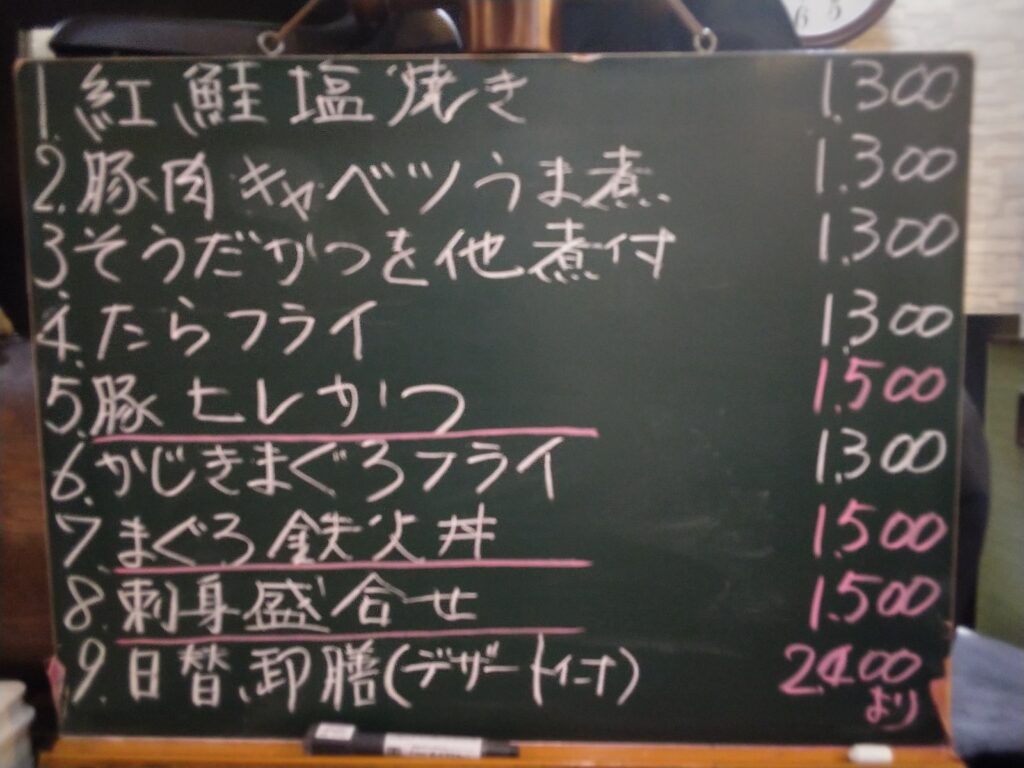 1. 紅鮭塩焼き 1.300
2. 豚肉キャベツうま煮 1.300
3. そうだがつを他煮付 1.300
4. たらフライ 1.300
5. 豚ヒレかつ 1.500
6. かじきまぐろフライ 1.300
7. まぐろ鉄火丼 1.500
8. 刺身盛合せ 1.500
9. 日替、御膳(デザート、コーヒー) 2.400
より